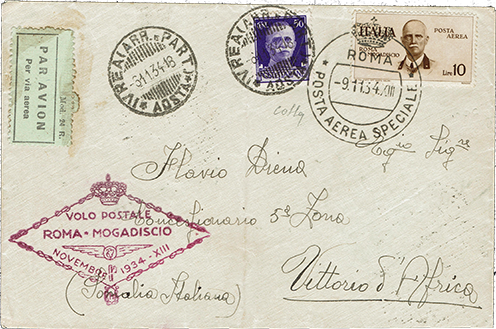 PAR AVION
Per via aerea
Mod. 24 R.
IVREA (ARR. E PART.)
-6.11.34.18
* (AOSTA) *
50 50
ITALIA
POSTA AEREA
ROMA MOGADISCIO
Lire 10
ROMA
-9.11.34.XIII
* POSTA AEREA SPECIALE *
Egio Sigre
Flavio Diena
Concessionario 5ª Zona
Vittorio d'Africa
(Somalia Italiana)
VOLO POSTALE
ROMA - MOGADISCIO
NOVEMBRE 1934 - XIII